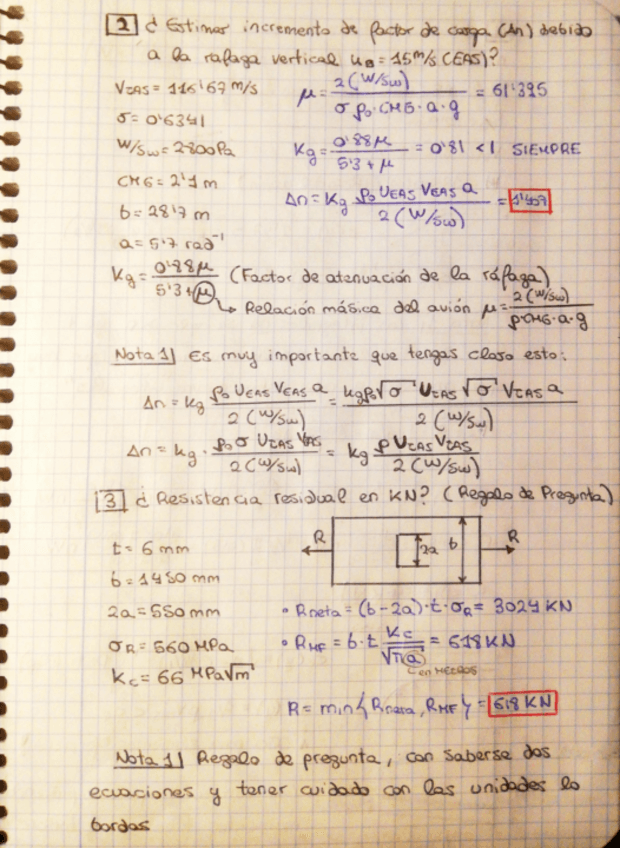 2 ¿ Estimar incremento de factor de carga (Δn) debido
a la ráfaga vertical uB = 15 m/s (EAS)?
VTAS = 116'67 m/s μ = 2(W/Sw) / σ ρ0·CMG·a·g = 61'395
σ = 0'6341
W/Sw = 2800 Pa Kg = 0'88μ / 5'3+μ = 0'81 < 1 SIEMPRE
CMG = 2'1 m
b = 28'7 m Δn = Kg ρ0 UEAS VEAS a / 2(W/Sw) =
a = 5'7 rad⁻¹
Kg = 0'88μ / 5'3+μ (Factor de atenuación de la ráfaga)
↳ Relación másica del avión μ = 2(W/Sw) / ρ·CMG·a·g
Nota 1| Es muy importante que tengas claro esto:
Δn = Kg ρ0 UEAS VEAS a / 2(W/Sw) = kg ρ0 √σ UTAS √σ VTAS a / 2(W/Sw)
Δn = kg · ρ0 σ UTAS VTAS / 2(W/Sw) = kg ρ UTAS VTAS / 2(W/Sw)
3 ¿ Resistencia residual en KN? (Regalo de Pregunta)
R 2a b R
t = 6 mm
b = 1450 mm
2a = 550 mm • Rneta = (b-2a)·t·σR = 3024 KN
σR = 560 MPa • RMF = b·t Kc / √πa = 618 KN
Kc = 66 MPa√m en METROS
R = min{Rneta, RMF} = 618 KN
Nota 1| Regalo de pregunta, con saberse dos
ecuaciones y tener cuidado con las unidades lo
bordas